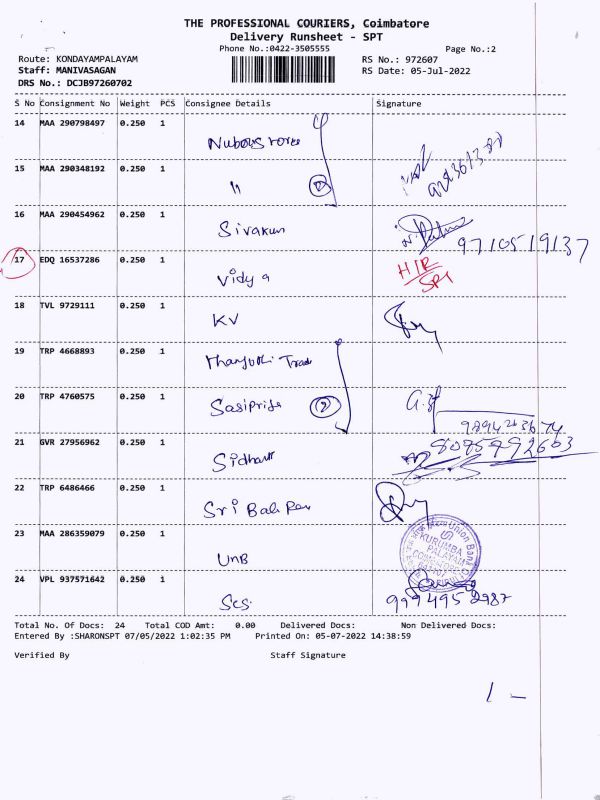 THE PROFESSIONAL COURIERS, Coimbatore
Delivery Runsheet - SPT
Phone No.:0422-3505555
Page No.:2
Route: KONDAYAMPALAYAM
RS No.: 972607
Staff: MANIVASAGAN
RS Date: 05-Jul-2022
DRS No.: DCJB97260702
S No Consignment No Weight PCS Consignee Details Signature
14 MAA 290798497 0.250 1
15 MAA 290348192 0.250 1
"
16 MAA 290454962 0.250 1
Sivakum
9710519137
17 EDQ 16537286 0.250 1
Vidya
H/R
SPT
18 TVL 9729111 0.250 1
KV
19 TRP 4668893 0.250 1
20 TRP 4760575 0.250 1
Sasiprija
2
21 GVR 27956962 0.250 1
8095992603
Sidhart
22 TRP 6486466 0.250 1
Sri Bala
23 MAA 286359079 0.250 1
UNB
Union Bank
KURUMBA
PALAYAM
24 VPL 937571642 0.250 1
Scs
9994952987
Total No. Of Docs: 24 Total COD Amt: 0.00 Delivered Docs: Non Delivered Docs:
Entered By :SHARONSPT 07/05/2022 1:02:35 PM Printed On: 05-07-2022 14:38:59
Verified By Staff Signature
1 -